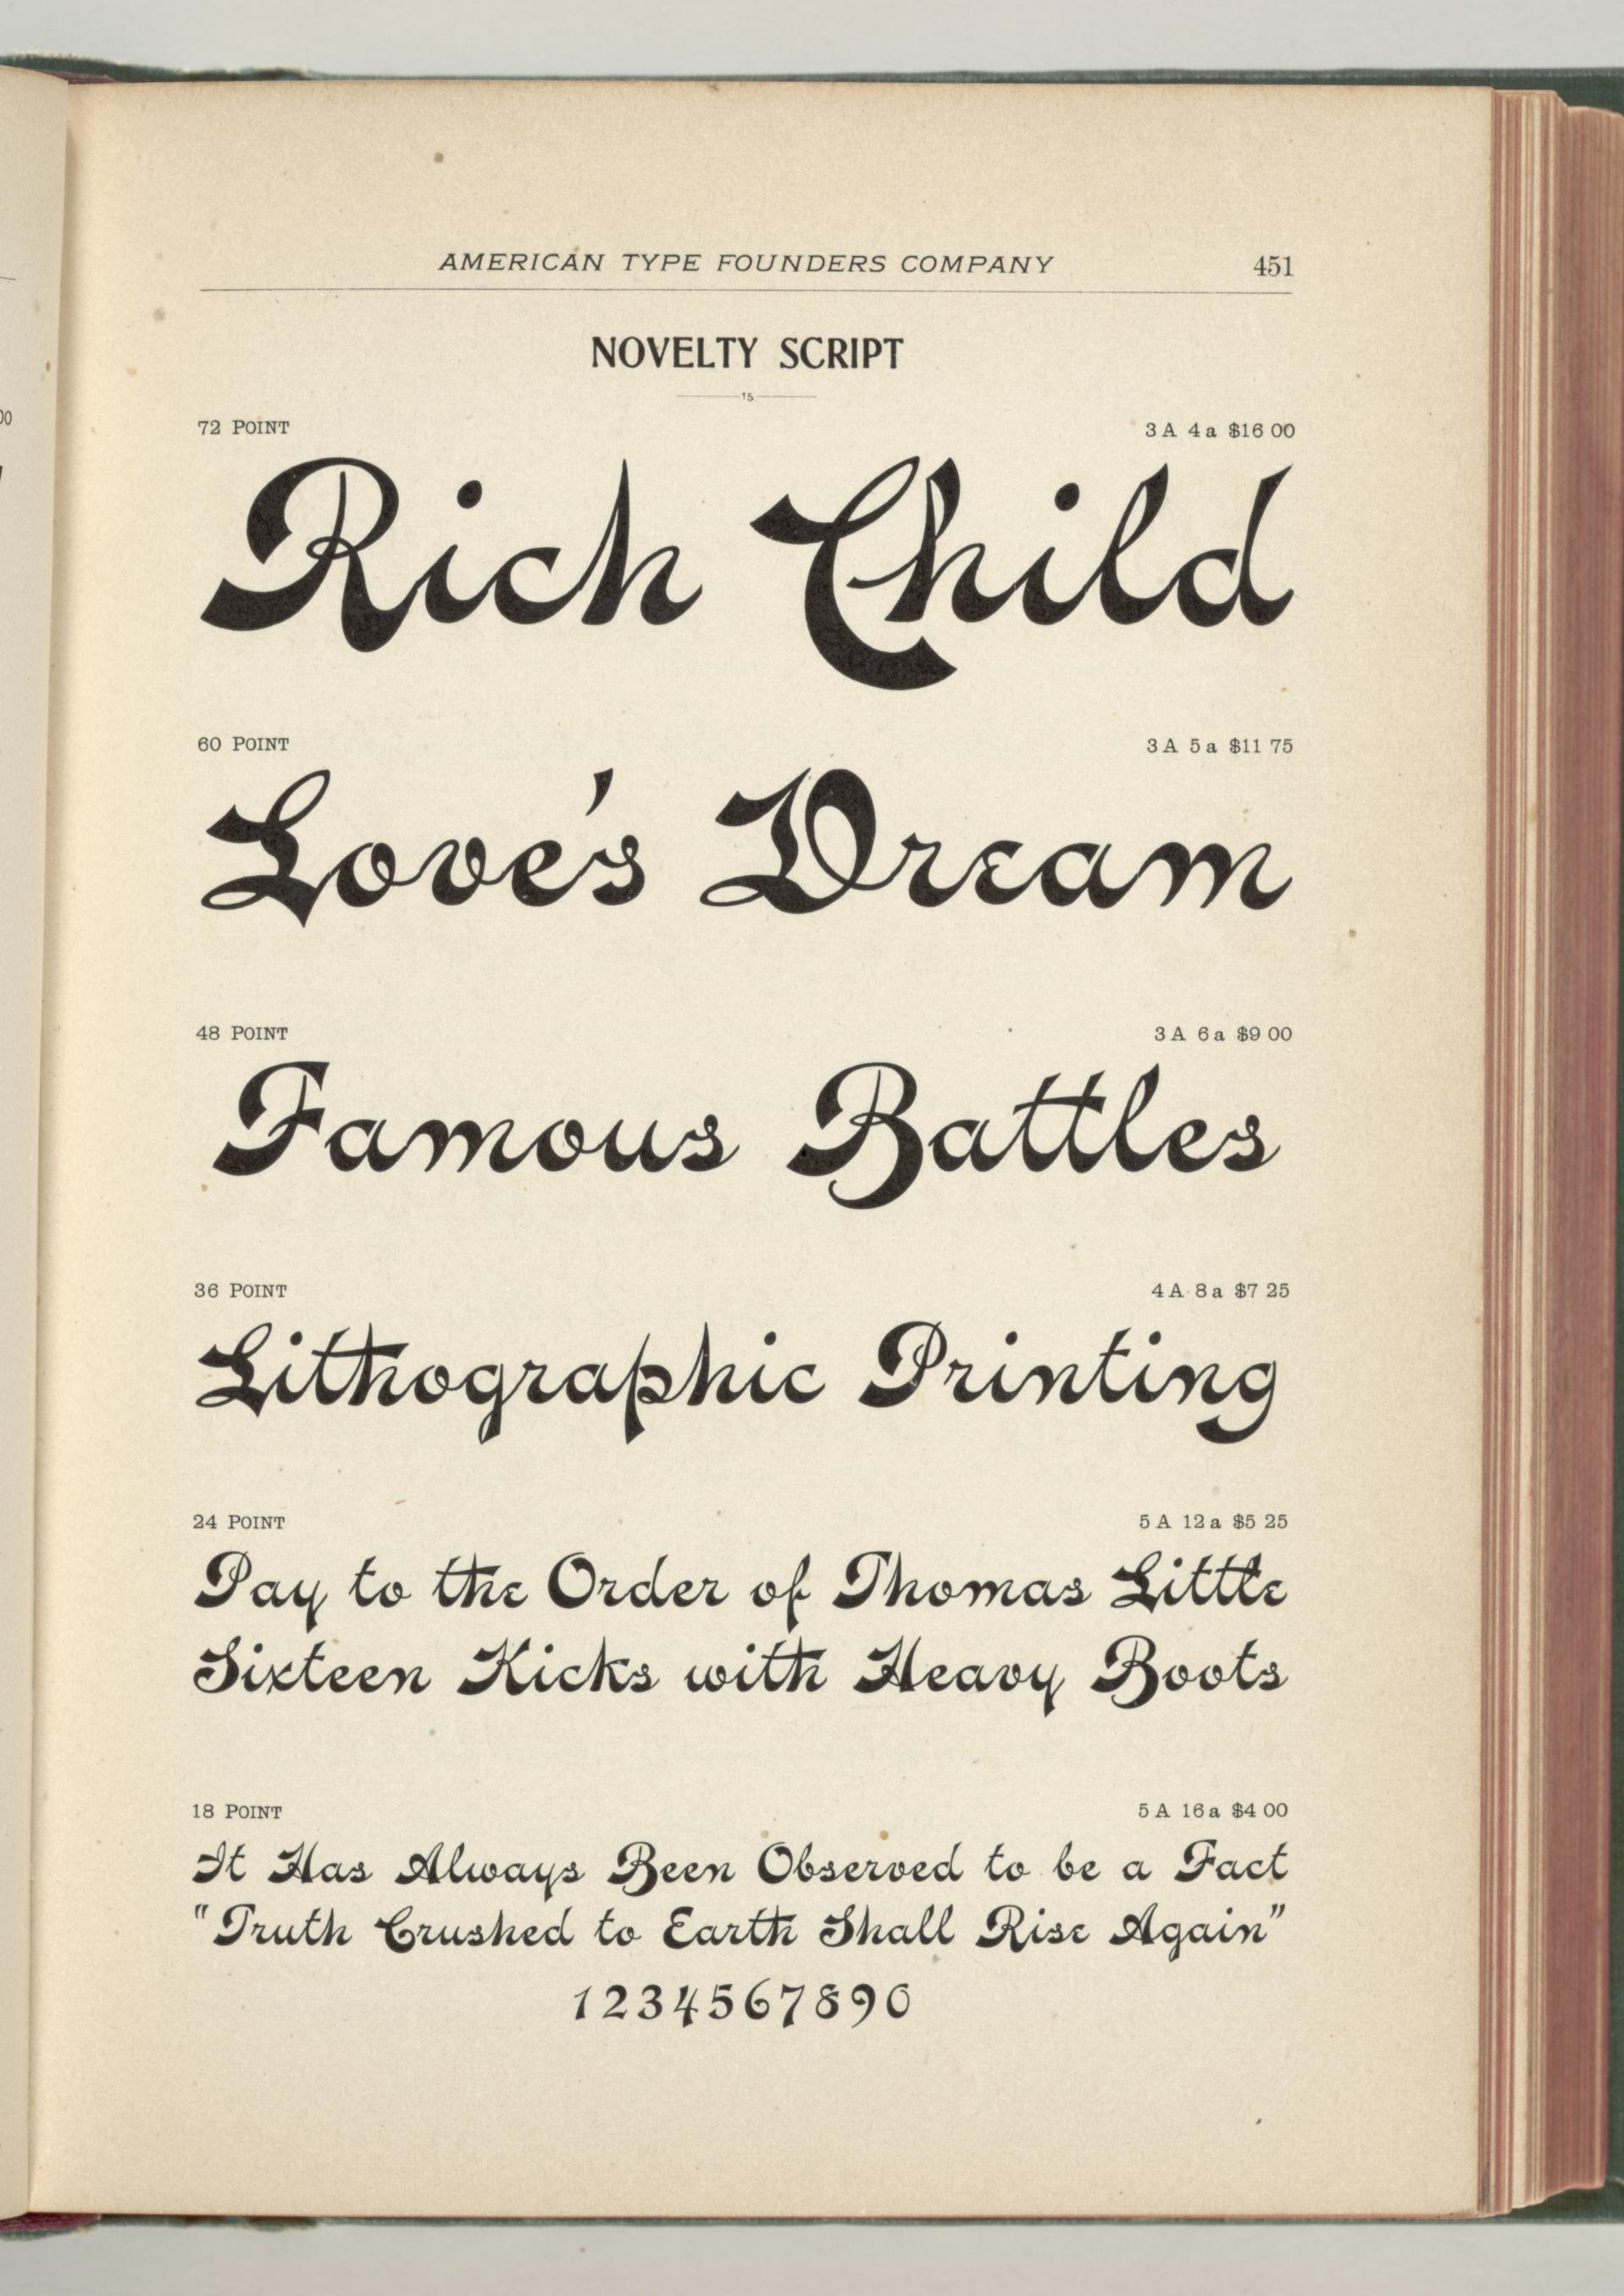 AMERICAN TYPE FOUNDERS COMPANY 451
NOVELTY SCRIPT
15
72 POINT 3 A 4 a $16 00
Rich Child
60 POINT 3 A 5 a $11 75
Love's Dream
48 POINT 3 A 6 a $9 00
Famous Battles
36 POINT 4 A 8 a $7 25
Lithographic Printing
24 POINT 5 A 12 a $5 25
Pay to the Order of Thomas Little
Sixteen Kicks with Heavy Boots
18 POINT 5 A 16 a $4 00
It Has Always Been Observed to be a Fact
"Truth Crushed to Earth Shall Rise Again"
1234567890